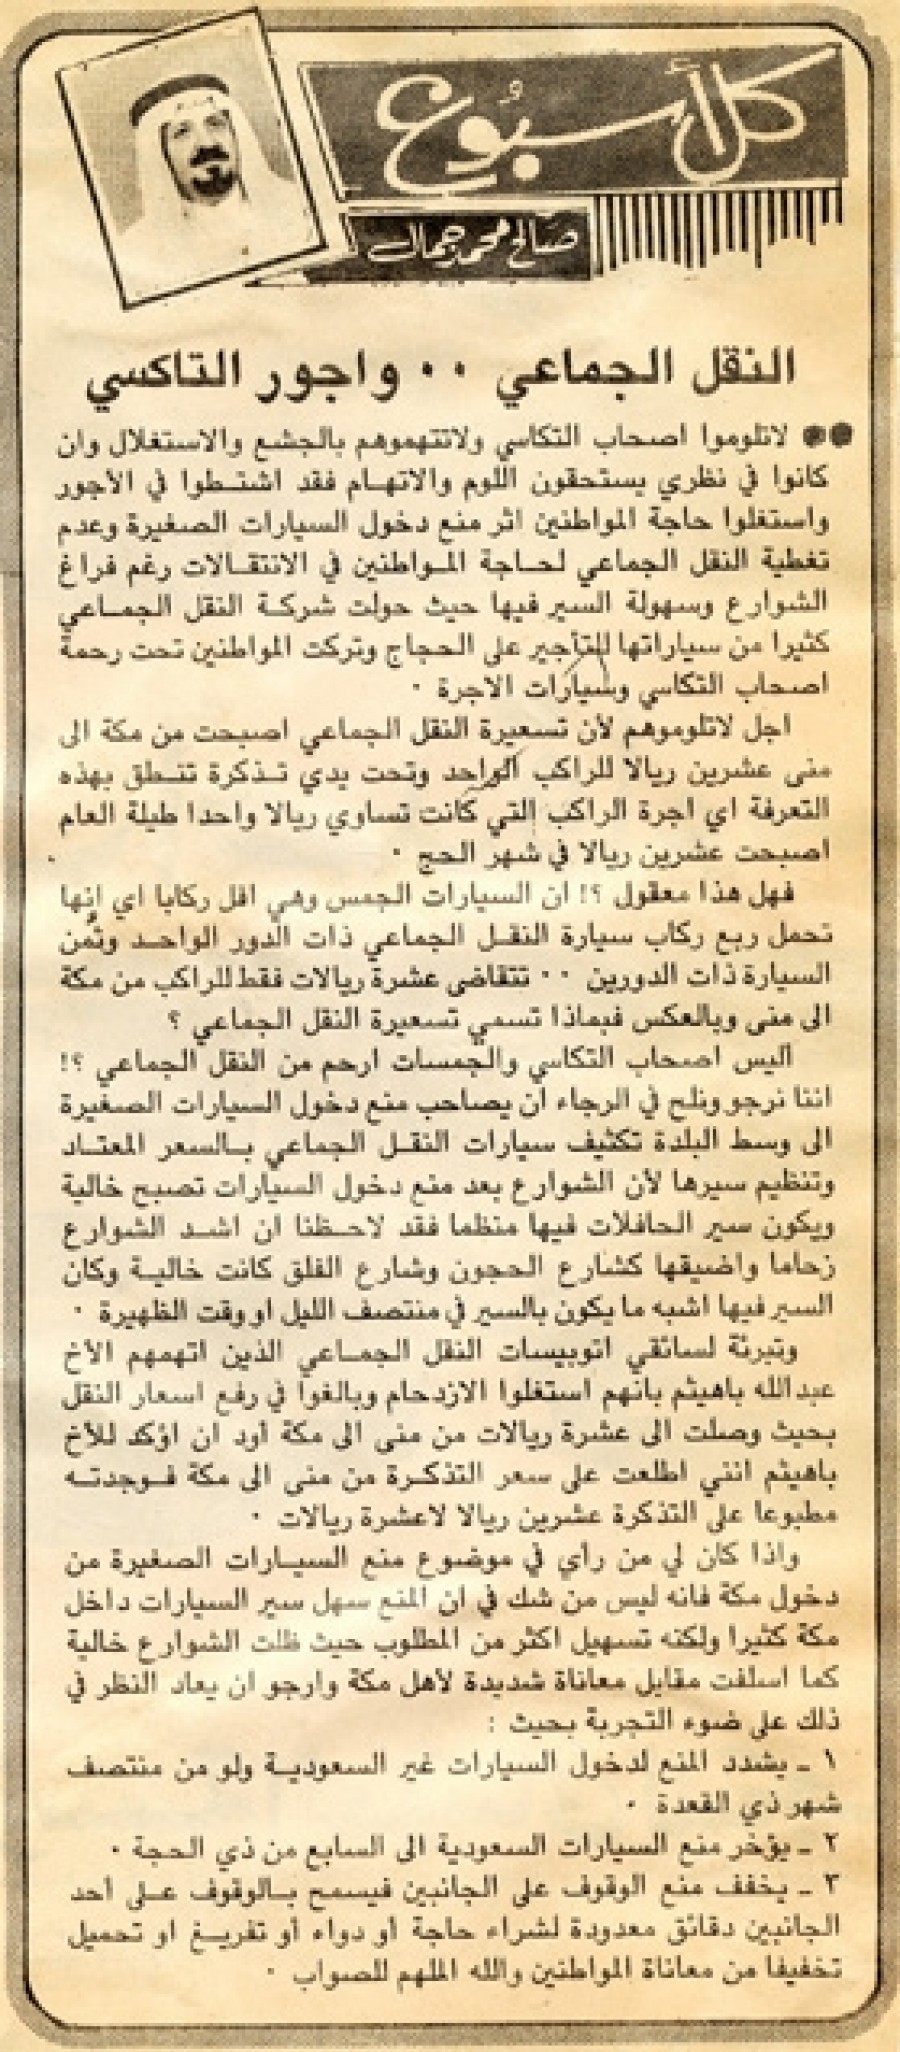 كل أسبوع
صالح محمد جمال
النقل الجماعي ٠٠ واجور التاكسي
لاتلوموا اصحاب التكاسي ولاتتهموهم بالجشع والاستغلال وان
كانوا في نظري يستحقون اللوم والاتهام فقد اشتطوا في الأجور
واستغلوا حاجة المواطنين اثر منع دخول السيارات الصغيرة وعدم
تغطية النقل الجماعي لحاجة المواطنين في الانتقالات رغم فراغ
الشوارع وسهولة السير فيها حيث حولت شركة النقل الجماعي
كثيرا من سياراتها للتأجير على الحجاج وتركت المواطنين تحت رحمة
اصحاب التكاسي وسيارات الاجرة ٠
اجل لاتلوموهم لأن تسعيرة النقل الجماعي اصبحت من مكة الى
منى عشرين ريالا للراكب الواحد وتحت يدي تذكرة تنطق بهذه
التعرفة اي اجرة الراكب التي كانت تساوي ريالا واحدا طيلة العام
اصبحت عشرين ريالا في شهر الحج ٠
فهل هذا معقول ؟! ان السيارات الجمس وهي اقل ركابا اي انها
تحمل ربع ركاب سيارة النقل الجماعي ذات الدور الواحد وثمن
السيارة ذات الدورين ٠٠ تتقاضى عشرة ريالات فقط للراكب من مكة
الى منى وبالعكس فبماذا تسمي تسعيرة النقل الجماعي ؟
اليس اصحاب التكاسي والجمسات ارحم من النقل الجماعي ؟!
اننا نرجو ونلح في الرجاء أن يصاحب منع دخول السيارات الصغيرة
الى وسط البلدة تكثيف سيارات النقل الجماعي بالسعر المعتاد
وتنظيم سيرها لأن الشوارع بعد منع دخول السيارات تصبح خالية
ويكون سير الحافلات فيها منظما فقد لاحظنا ان اشد الشوارع
زحاما واضيقها كشارع الحجون وشارع الفلق كانت خالية وكان
السير فيها اشبه ما يكون بالسير في منتصف الليل او وقت الظهيرة ٠
وتبرئة لسائقي اتوبيسات النقل الجماعي الذين اتهمهم الأخ
عبدالله باهيثم بانهم استغلوا الازدحام وبالغوا في رفع اسعار النقل
بحيث وصلت الى عشرة ريالات من منى الى مكة أود ان اؤكد للأخ
باهيثم انني اطلعت على سعر التذكرة من منى الى مكة فوجدته
مطبوعا على التذكرة عشرين ريالا لاعشرة ريالات ٠
واذا كان لي من رأي في موضوع منع السيارات الصغيرة من
دخول مكة فانه ليس من شك في ان المنع سهل سير السيارات داخل
مكة كثيرا ولكنه تسهيل اكثر من المطلوب حيث ظلت الشوارع خالية
كما اسلفت مقابل معاناة شديدة لأهل مكة وارجو ان يعاد النظر في
ذلك على ضوء التجربة بحيث :
١ ـ يشدد المنع لدخول السيارات غير السعودية ولو من منتصف
شهر ذي القعدة ٠
٢ ـ يؤخر منع السيارات السعودية الى السابع من ذي الحجة ٠
٣ ـ يخفف منع الوقوف على الجانبين فيسمح بالوقوف على أحد
الجانبين دقائق معدودة لشراء حاجة أو دواء أو تفريغ او تحميل
تخفيفا من معاناة المواطنين والله الملهم للصواب ٠